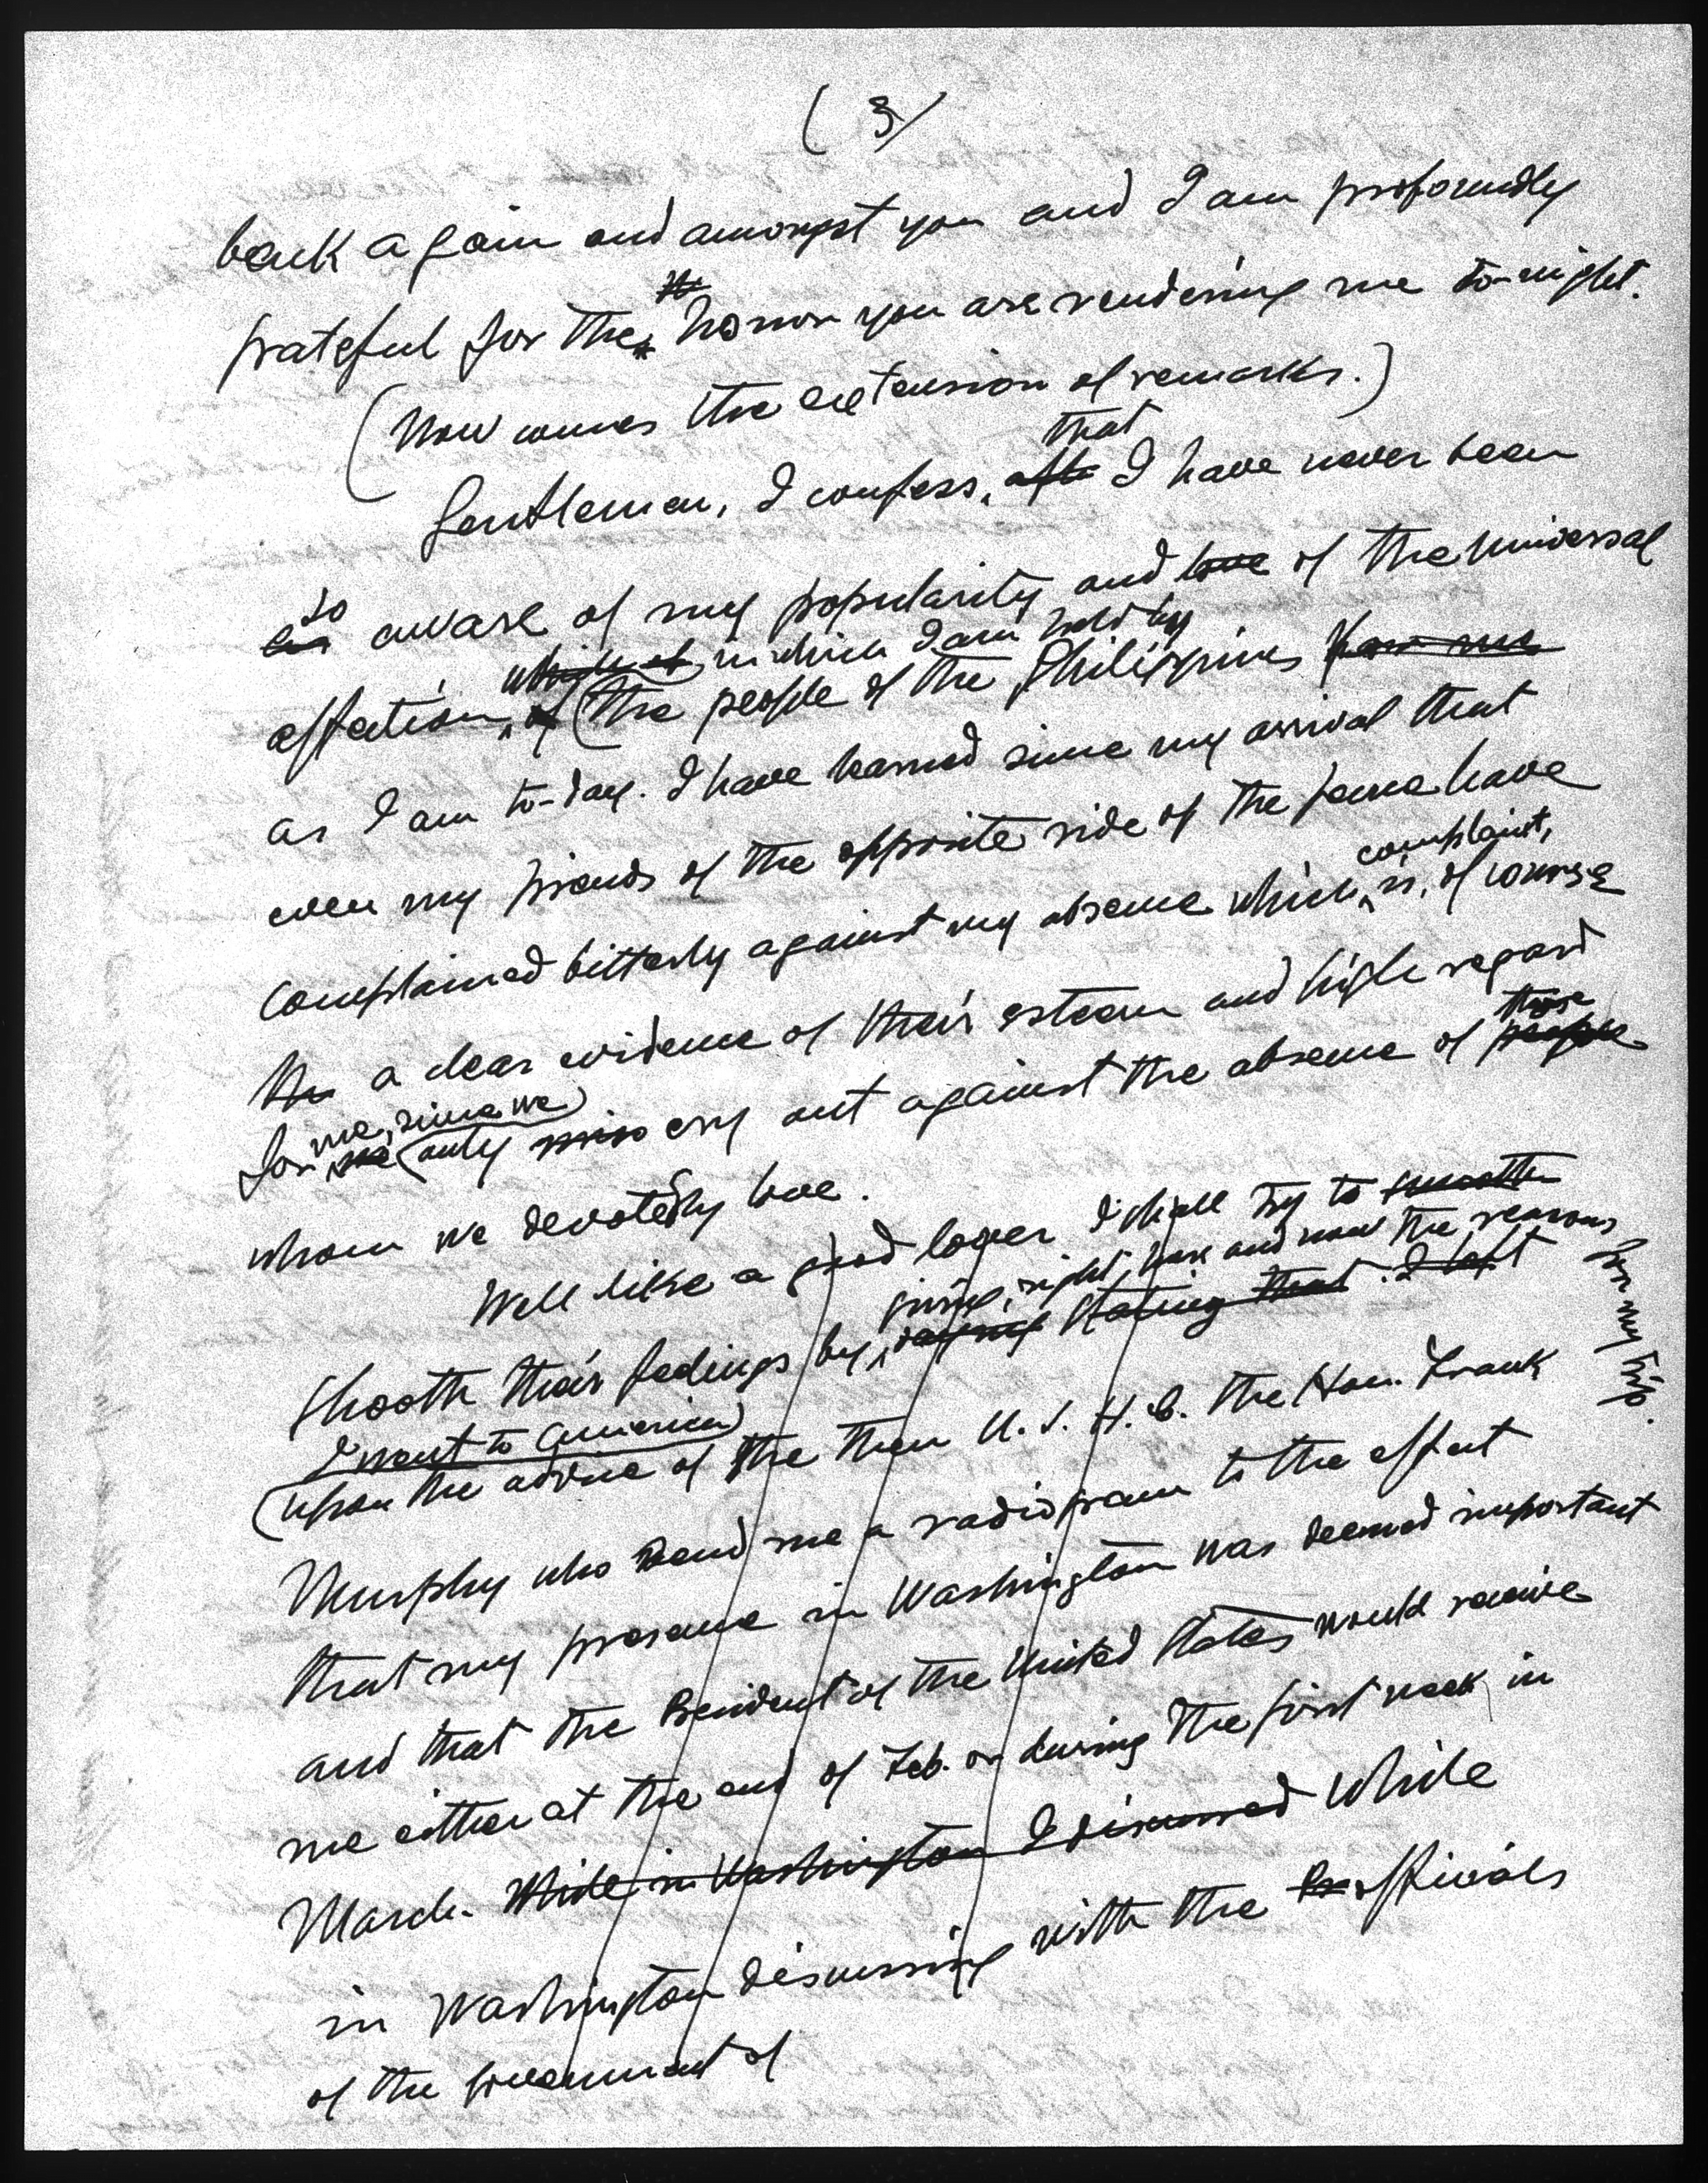 (3)
back again and amongst you and I am profoundly
grateful for the honor you are rendering me to-night.
(Now comes the extension of remarks.)
that
Gentlemen, I confess, I have never been
so
as aware of my popularity and love of the universal
in which I am held by
affection, of (the people of the Philippines
as I am to-day. I have learned since my arrival that
even my friends of the opposite side of the fence have
complaint,
complained bitterly against my absence which, is, of course
the a clear evidence of their esteem and high regard
those
me, since we
for me (only miss cry out against the absence of people
whom we devotedly love.
Well like a good lover I shall try to smooth
giving, right here and now the reasons for my trip.
smooth their feelings by, saying stating that I left
I went to America
(upon the advice of the then U.S.H.C. the Hon. Frank
Murphy who send me a radiogram to the effect
that my presence in Washington was deemed important
and that the President of the United States would receive
me either at the end of Feb. or during the first week in
March. While in Washington I discussed While
in Washington discussing with the officials
of the government of